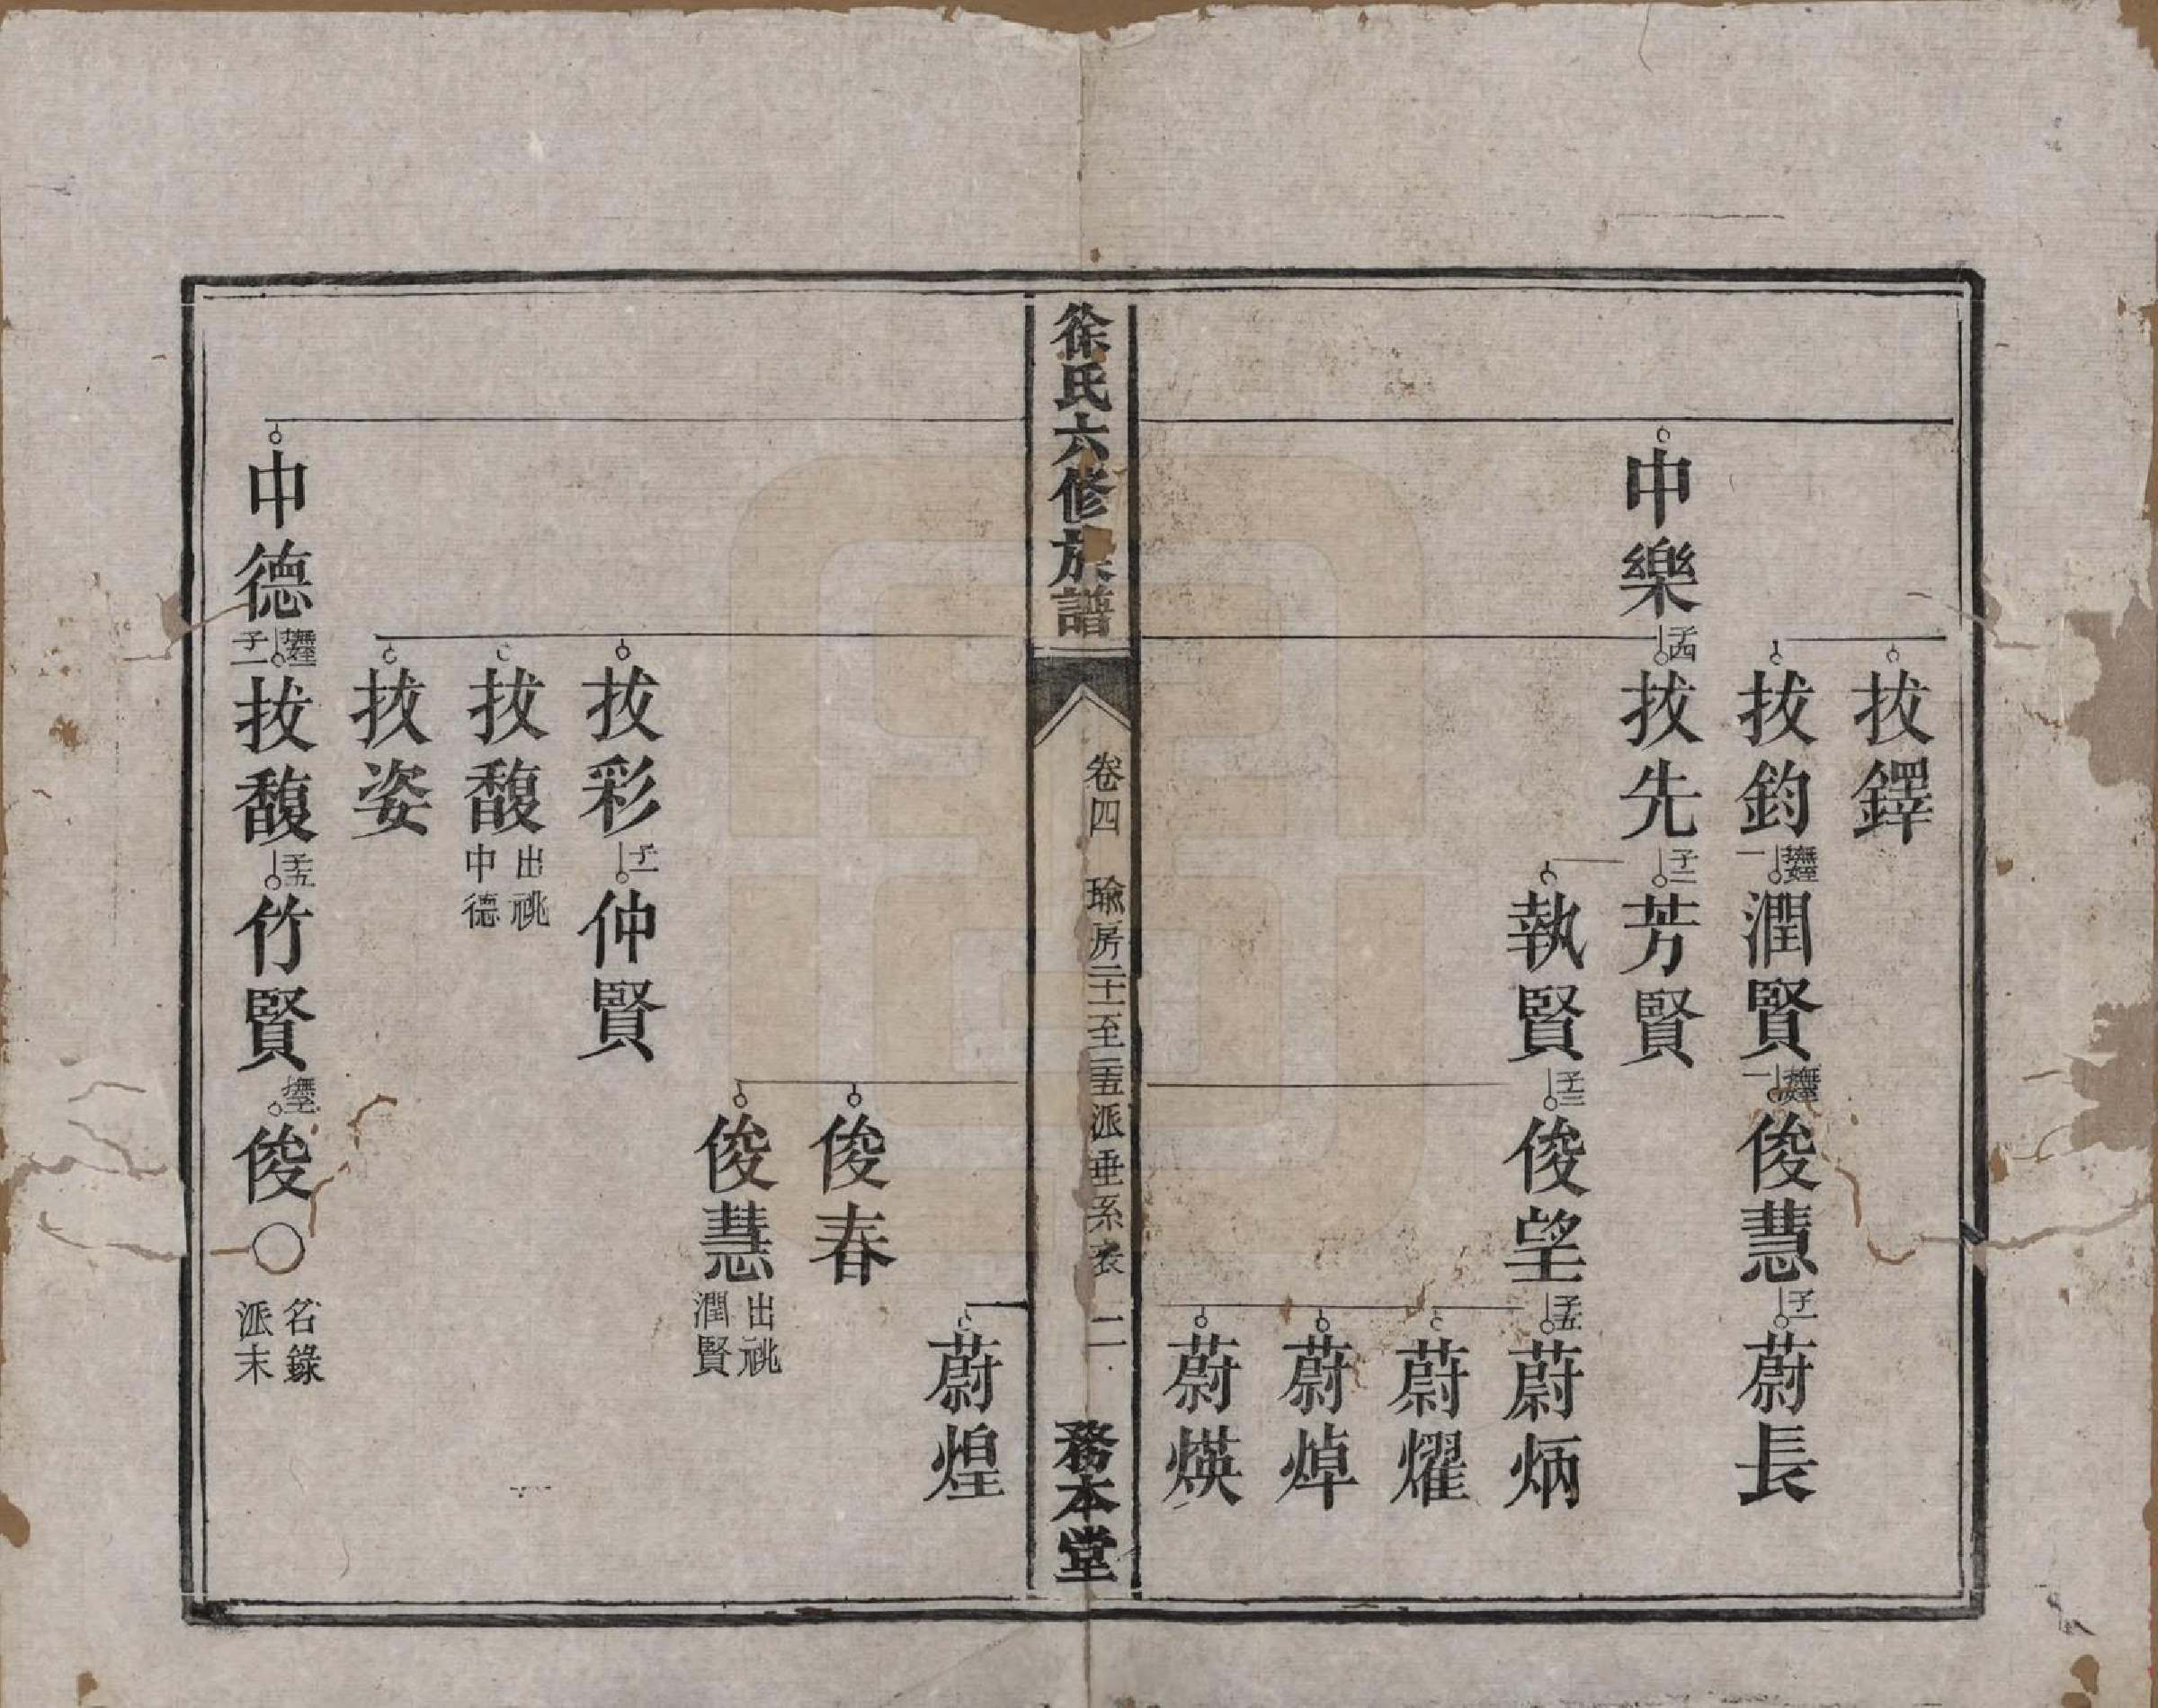 拔鐸
拔鈞
潤賢
俊慧
子一
蔚長
中樂
子四
拔先
子二
芳賢
執賢
子三
俊望
子五
蔚炳
蔚燿
蔚焯
蔚煐
徐氏六修族譜
卷四 瑜房二十一至二十五派垂系表 二
務本堂
蔚煌
俊春
俊慧
出祧
潤賢
拔彩
子一
仲賢
拔馥
出祧
中德
拔姿
中德
子一
拔馥
子五
竹賢
俊〇
名錄
派末